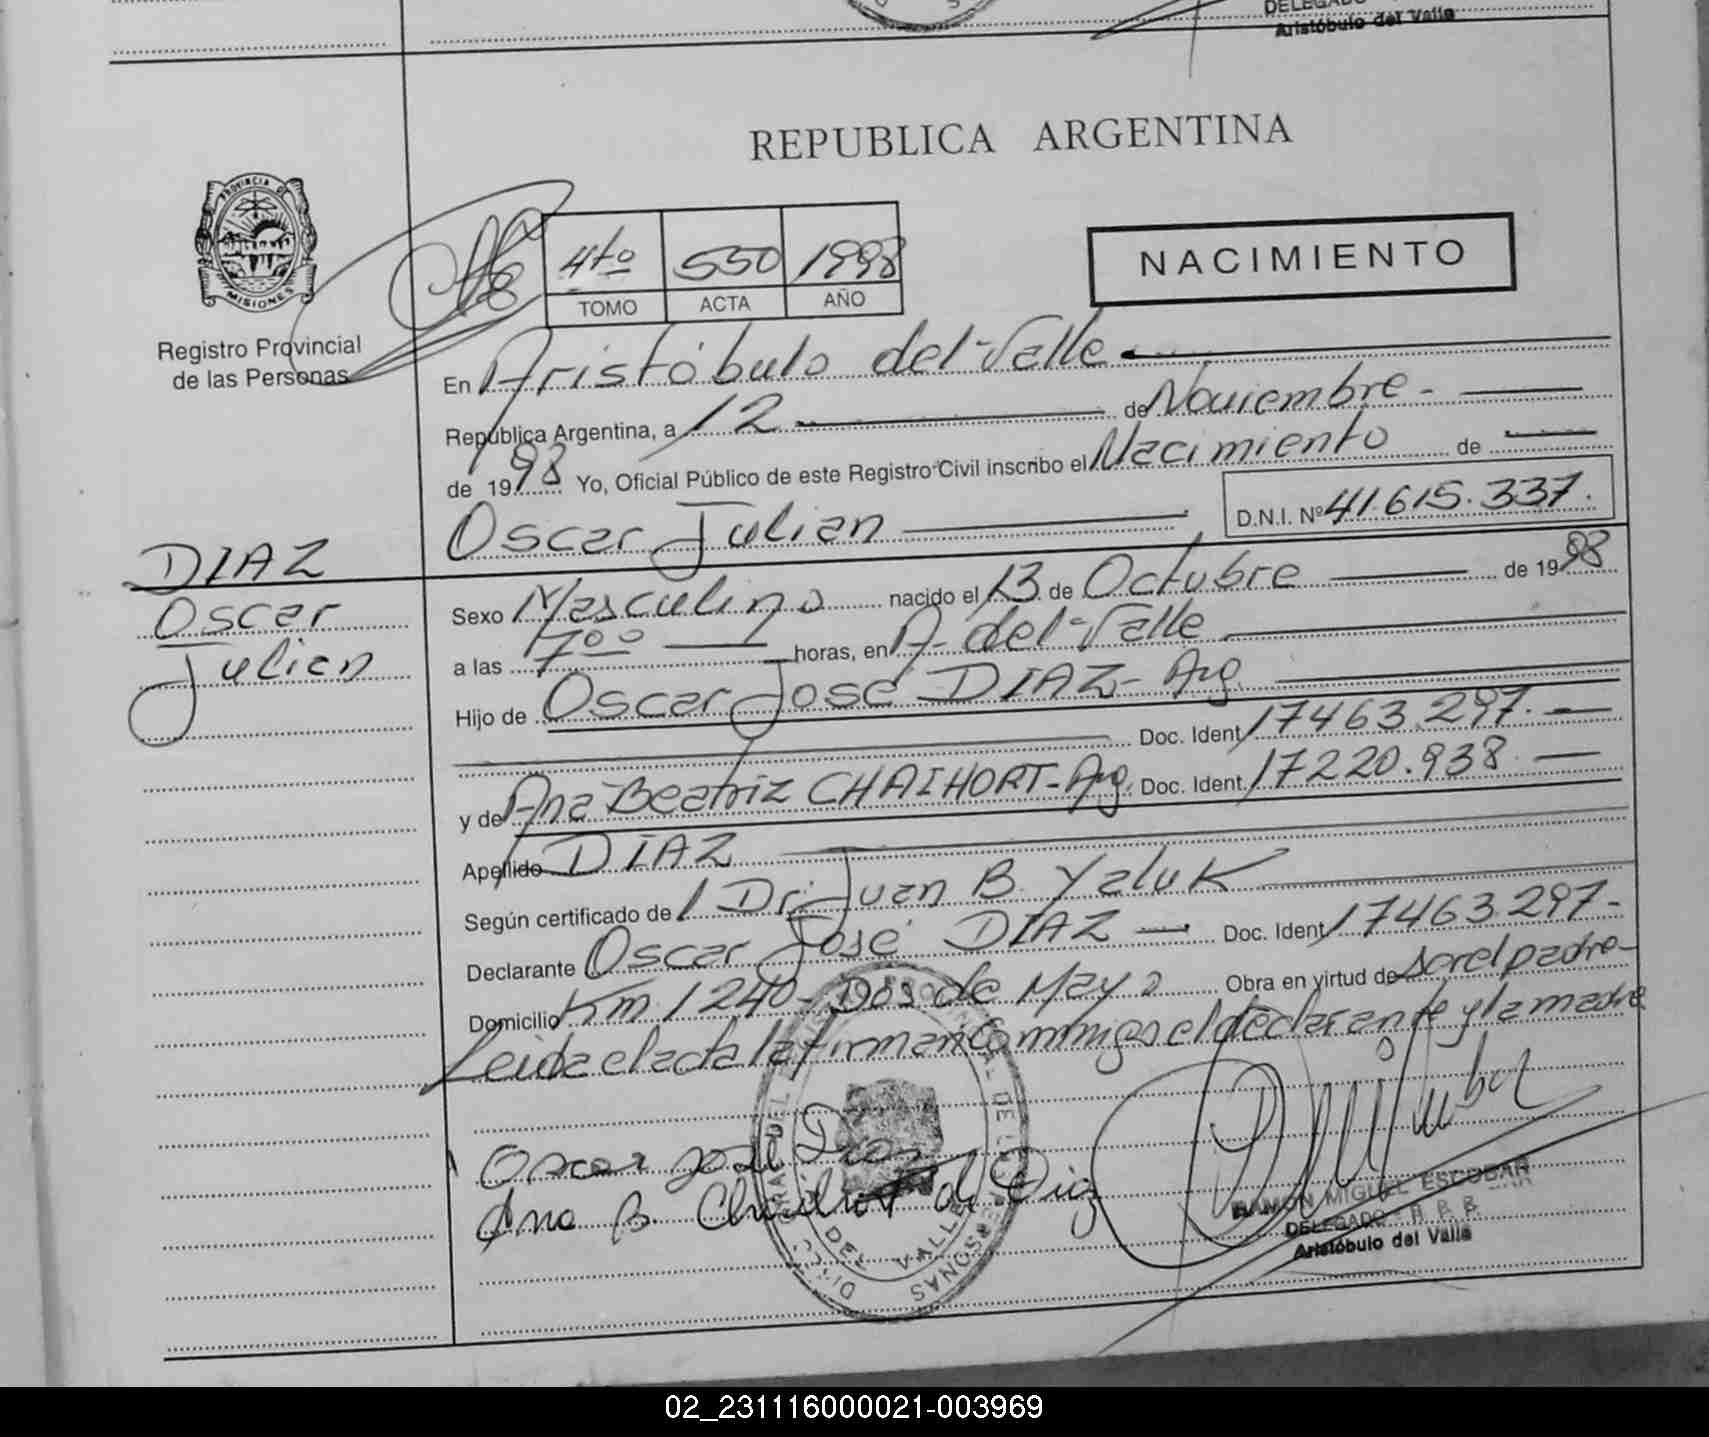 DELEGADO
Aristóbulo del Valle
REPUBLICA ARGENTINA
PROVINCIA DE
MISIONES
Registro Provincial
de las Personas
4to 550 1998
TOMO ACTA AÑO
NACIMIENTO
En Aristóbulo del Valle
República Argentina, a 12 de Noviembre -
de 1998 Yo, Oficial Público de este Registro Civil inscribo el Nacimiento de
Oscar Julian D.N.I. Nº 41.615.337.
DIAZ
Oscar
Julian
Sexo Masculino nacido el 13 de Octubre de 1998
a las 7 00 horas, en A. del Valle
Hijo de Oscar José DIAZ - Arg.
Doc. Ident. 17463.297. -
y de Ana Beatriz CHAIHORT - Arg. Doc. Ident. 17220.938. -
Apellido DIAZ
Según certificado de Dr. Juan B. Yaluk
Declarante Oscar José DIAZ - Doc. Ident. 17463.297 -
Domicilio Km. 1240 - Dos de Mayo Obra en virtud de ser el padre -
Leida el acta la firman conmigo el declarante y la madre
Oscar José Diaz
Ana B. de Diaz
DEL VALLE
RAMON MIGUEL ESCOBAR
DELEGADO
Aristóbulo del Valle
02_231116000021-003969